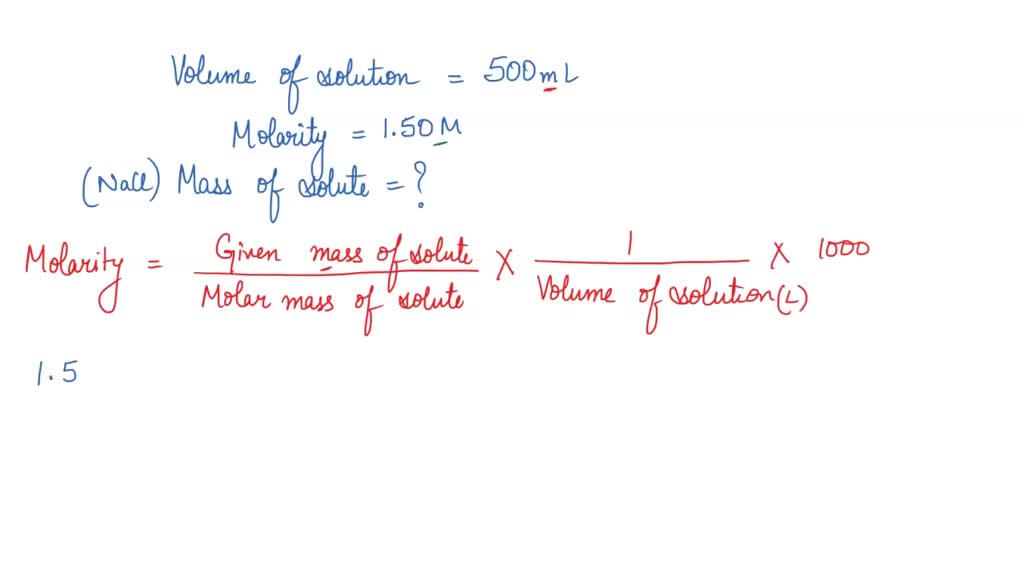 Volume of solution = 500mL
Molarity = 1.50M
(NaCl) Mass of solute = ?
Molarity = Given mass of solute / Molar mass of solute X 1 / Volume of solution(L) X 1000
1.5